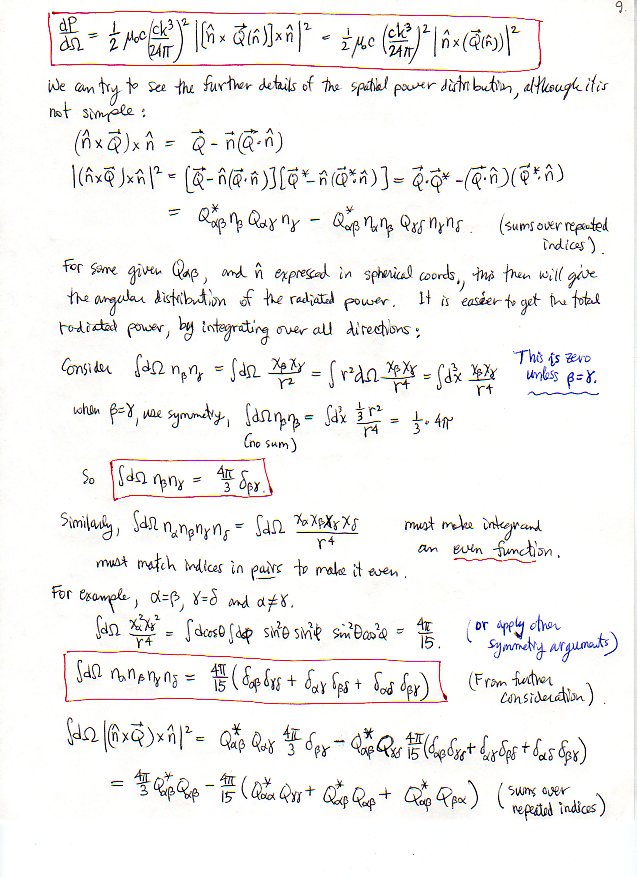 9.
dP/dΩ = 1/2 μ₀c (ck³/24π)² |[n̂ × Q⃗(n̂)] × n̂|² = 1/2 μ₀c (ck³/24π)² |n̂ × (Q⃗(n̂))|²
We can try to see the further details of the spatial power distribution, although it is
not simple:
(n̂ × Q⃗) × n̂ = Q⃗ - n⃗(Q⃗·n̂)
|(n̂×Q⃗)×n̂|² = [Q⃗ - n̂(Q⃗·n̂)][Q⃗* - n̂(Q⃗*·n̂)] = Q⃗·Q⃗* - (Q⃗·n̂)(Q⃗*·n̂)
= Q*αβ nβ Qαγ nγ - Q*αβ nα nβ Qγδ nγ nδ. (sums over repeated
indices).
For some given Qαβ, and n̂ expressed in spherical coords., this then will give
the angular distribution of the radiated power. It is easier to get the total
radiated power, by integrating over all directions:
Consider ∫dΩ nβ nγ = ∫dΩ xβxγ/r² = ∫r²dΩ xβxγ/r⁴ = ∫d³x xβxγ/r⁴ This is zero
unless β=γ.
when β=γ, use symmetry, ∫dΩ nβ nβ = ∫d³x 1/3 r²/r⁴ = 1/3 · 4π
(no sum)
So ∫dΩ nβ nγ = 4π/3 δβγ.
Similarly, ∫dΩ nα nβ nγ nδ = ∫dΩ xα xβ xγ xδ/r⁴ must make integrand
an even function.
must match indices in pairs to make it even.
For example, α=β, γ=δ and α≠γ.
∫dΩ xα²xγ²/r⁴ = ∫dcosθ ∫dφ sin²θ sin²φ sin²θ cos²φ = 4π/15. (or apply other
symmetry arguments)
∫dΩ nα nβ nγ nδ = 4π/15 (δαβ δγδ + δαγ δβδ + δαδ δβγ) (From further
consideration).
∫dΩ |(n̂×Q⃗)×n̂|² = Q*αβ Qαγ 4π/3 δβγ - Q*αβ Qγδ 4π/15 (δαβ δγδ + δαγ δβδ + δαδ δβγ)
= 4π/3 Q*αβ Qαβ - 4π/15 (Q*αα Qγγ + Q*αβ Qαβ + Q*αβ Qβα) (sums over
repeated indices)